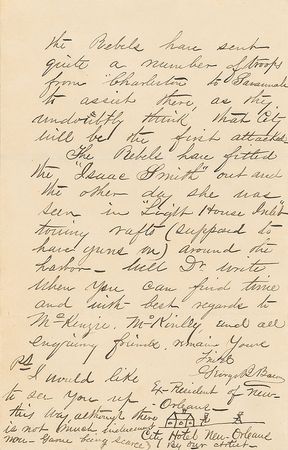 the Rebels have sent
quite a number of troops
from "Charleston" to Savannah
to assist there, as they
undoubtfly think that City
will be the first attacked.
The Rebels have fitted
the "Isaac Smith" out and
the other day she was
seen in "Light House Inlet"
towing rafts (supposed to
have guns on) around the
harbor — Well Dr. write
when you can find time
and with best regards to
McKenzie, McKinlly and all
enquiring friends. remain Yours
George B Bac
Ex-President of New-
Orleans—
City Hotel New-Orleans
By our artist—
P.S. I would like
to see you up
this way although there
is not much inducement
now—Game being scarce